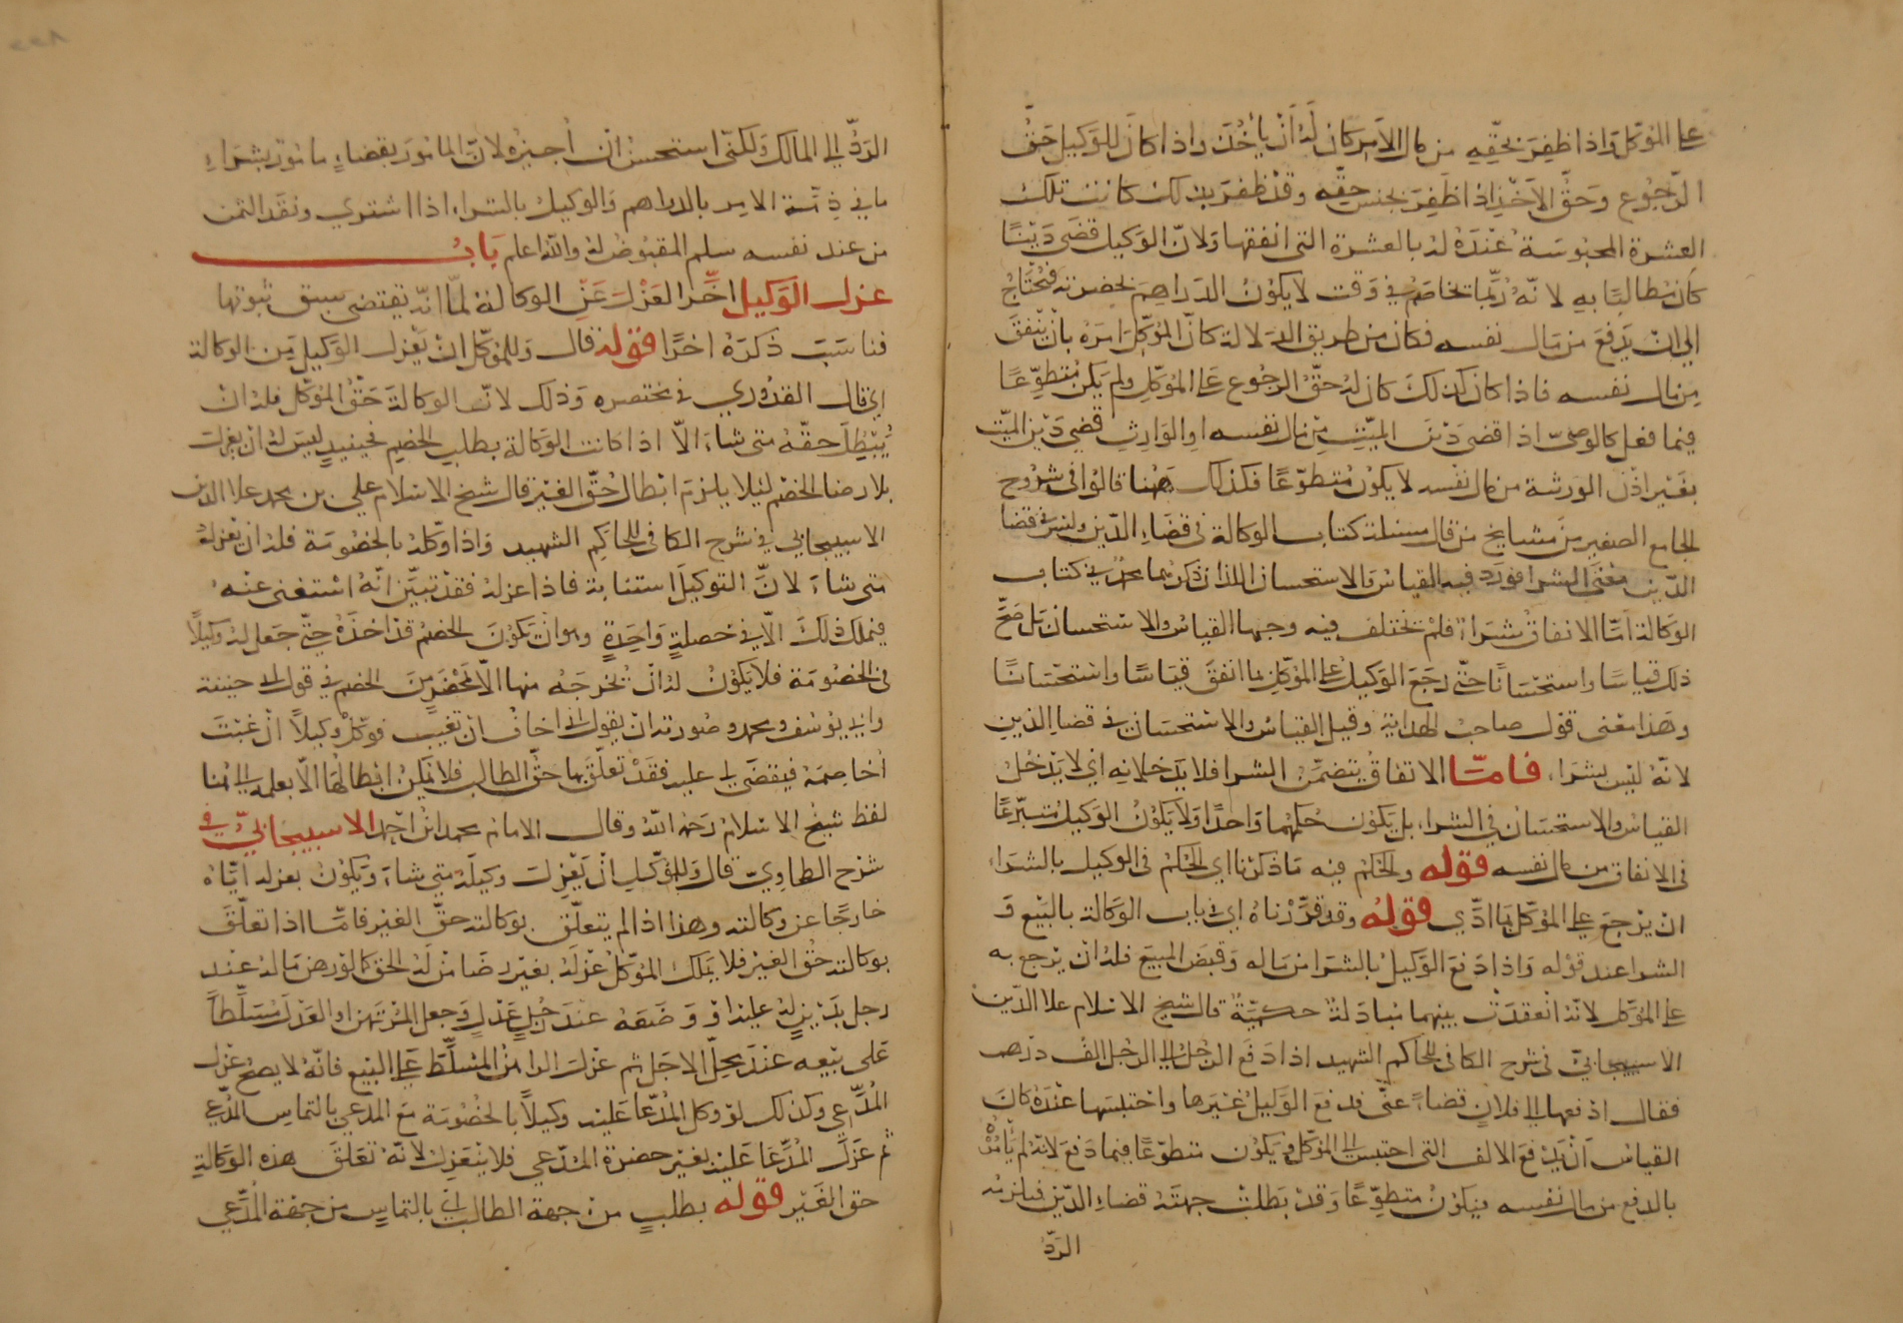 على الموكل واذا ظفر بحقه من مال الآمر كان له ان يأخذه واذا كان للوكيل حق
الرجوع وحق الاخذ اذا ظفر بجنس حقه وقد ظفر بذلك كانت تلك
العشرة المحبوسة عنده له بالعشرة التي انفقها ولان الوكيل قضى دينا
كان مطالبا به لانه ربما يخاصم في وقت لا يكون الدراهم بحضرته فيحتاج
الى ان يدفع من مال نفسه فكان من طريق الدلالة كان الموكل امره بان ينفق
من مال نفسه فاذا كان كذلك كان له حق الرجوع على الموكل ولم يكن متطوعا
فيما فعل كالوصي اذا قضى دين الميت من مال نفسه او الوارث قضى دين الميت
بغير اذن الورثة من مال نفسه لا يكون متطوعا فكذلك ههنا قالوا في شروح
الجامع الصغير من مشايخ من قال مسئلة كتاب الوكالة في قضاء الدين وليس في قضا
الدين معنى الشرا فورد فيه القياس والاستحسان اللذان ذكرهما محمد في كتاب
الوكالة اما الانفاق شراء فلم يختلف فيه وجها القياس والاستحسان بل صح
ذلك قياسا واستحسانا حتى رجع الوكيل على الموكل بما انفق قياسا واستحسانا
وهذا معنى قول صاحب الهداية وقيل القياس والاستحسان في قضا الدين
لانه ليس بشراء فاما الانفاق يتضمن الشرا فلا يدخلانه اي لا يدخل
القياس والاستحسان في الشراء بل يكون حكمهما واحدا ولا يكون الوكيل متبرعا
في الانفاق من مال نفسه قوله والحكم فيه ما ذكرنا اي الحكم في الوكيل بالشراء
ان يرجع على الموكل بما ادى قوله وقد قررناه اي في باب الوكالة بالبيع و
الشرا عند قوله واذا دفع الوكيل بالشرا من ماله وقبض المبيع فله ان يرجع به
على الموكل لانه انعقدت بينهما مبادلة حكمية قال شيخ الاسلام علا الدين
الاسبيجابي في شرح الكافي للحاكم الشهيد اذا دفع الرجل الى الرجل الف درهم
فقال ادفعها الى فلان قضاء عني فدفع الوكيل غيرها واحتبسها عنده كان
القياس ان يدفع الالف التي احتبس الى الموكل ويكون متطوعا فيما دفع لانه لم يأمره
بالدفع من مال نفسه فيكون متطوعا وقد بطلت جهته قضاء الدين فيلزمه
الرد
الرد الى المالك ولكني استحسن ان اجيزه لان المامور بقضاء مامور بشراء
ما في ذمة الامر بالدراهم والوكيل بالشراء اذا اشترى ونقد الثمن
من عند نفسه سلم المقبوض له والله اعلم باب
عزل الوكيل اخر العزل عن الوكالة لما انه يقتضي سبق ثبوتها
فناسب ذكره اخرا قوله قال وللموكل ان يعزل الوكيل من الوكالة
اي قال القدوري في مختصره وذلك لان الوكالة حق الموكل فله ان
يبطل حقه متى شاء الا اذا كانت الوكالة بطلب الخصم فحينئذ ليس له ان يعزله
بلا رضا الخصم لئلا يلزم ابطال حق الغير قال شيخ الاسلام علي بن محمد علا الدين
الاسبيجابي في شرح الكافي للحاكم الشهيد واذا وكله بالخصومة فله ان يعزله
متى شاء لان التوكيل استنابة فاذا عزله فقد تبين انه استغنى عنه
فيملك ذلك الا في خصلة واحدة وهو ان يكون الخصم قد اخذه حتى جعل له وكيلا
في الخصومة فلا يكون له ان يخرجه منها الا بمحضر من الخصم في قول ابي حنيفة
وابي يوسف ومحمد وصورته ان يقول اني اخاف ان تغيب فوكل وكيلا ان غبت
اخاصمه فيقضى لي عليه فقد تعلق بها حق الطالب فلا يمكن ابطالها الا بعلمه الى هنا
لفظ شيخ الاسلام رحمه الله وقال الامام محمد ابن احمد الاسبيجابي في
شرح الطحاوي قال وللموكل ان يعزل وكيله متى شاء ويكون بعزله اياه
خارجا عن وكالته وهذا اذا لم يتعلق بوكالته حق الغير فاما اذا تعلق
بوكالته حق الغير فلا يملك الموكل عزله بغير رضا من له الحق كما لو رهن ماله عند
رجل بدين له عليه او وضعه عند رجل عدل وجعل المرتهن او العدل مسلطا
على بيعه عند محل الاجل ثم عزل الراهن المسلط على البيع فانه لا يصح عزله
المدعي وكذلك لو وكل المدعا عليه وكيلا بالخصومة مع المدعي بالتماس المدعي
ثم عزل المدعا عليه بغير حضرة المدعي فلا ينعزل لانه تعلق هذه الوكالة
حق الغير قوله بطلب من جهة الطالب اي بالتماس من جهة المدعي